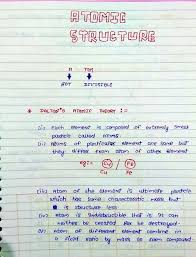 ATOMIC
STRUCTURE
A TOM
NOT DIVISIBLE
* DALTON'S ATOMIC THEORY :-
(i) Each element is composed of extremely small
particle called atoms.
(ii) Atoms of particular element are same but
they differ from atom of other element
eg:- Cu / Fe
Cu Fe
(iii) Atom of the element is ultimate particle
which has same characteristic mass but
is structure less
(iv) Atom is indestructible that is it can
neither be created nor be destroyed
(v) Atom of different element combine in
a fixed ratio by mass to form compound